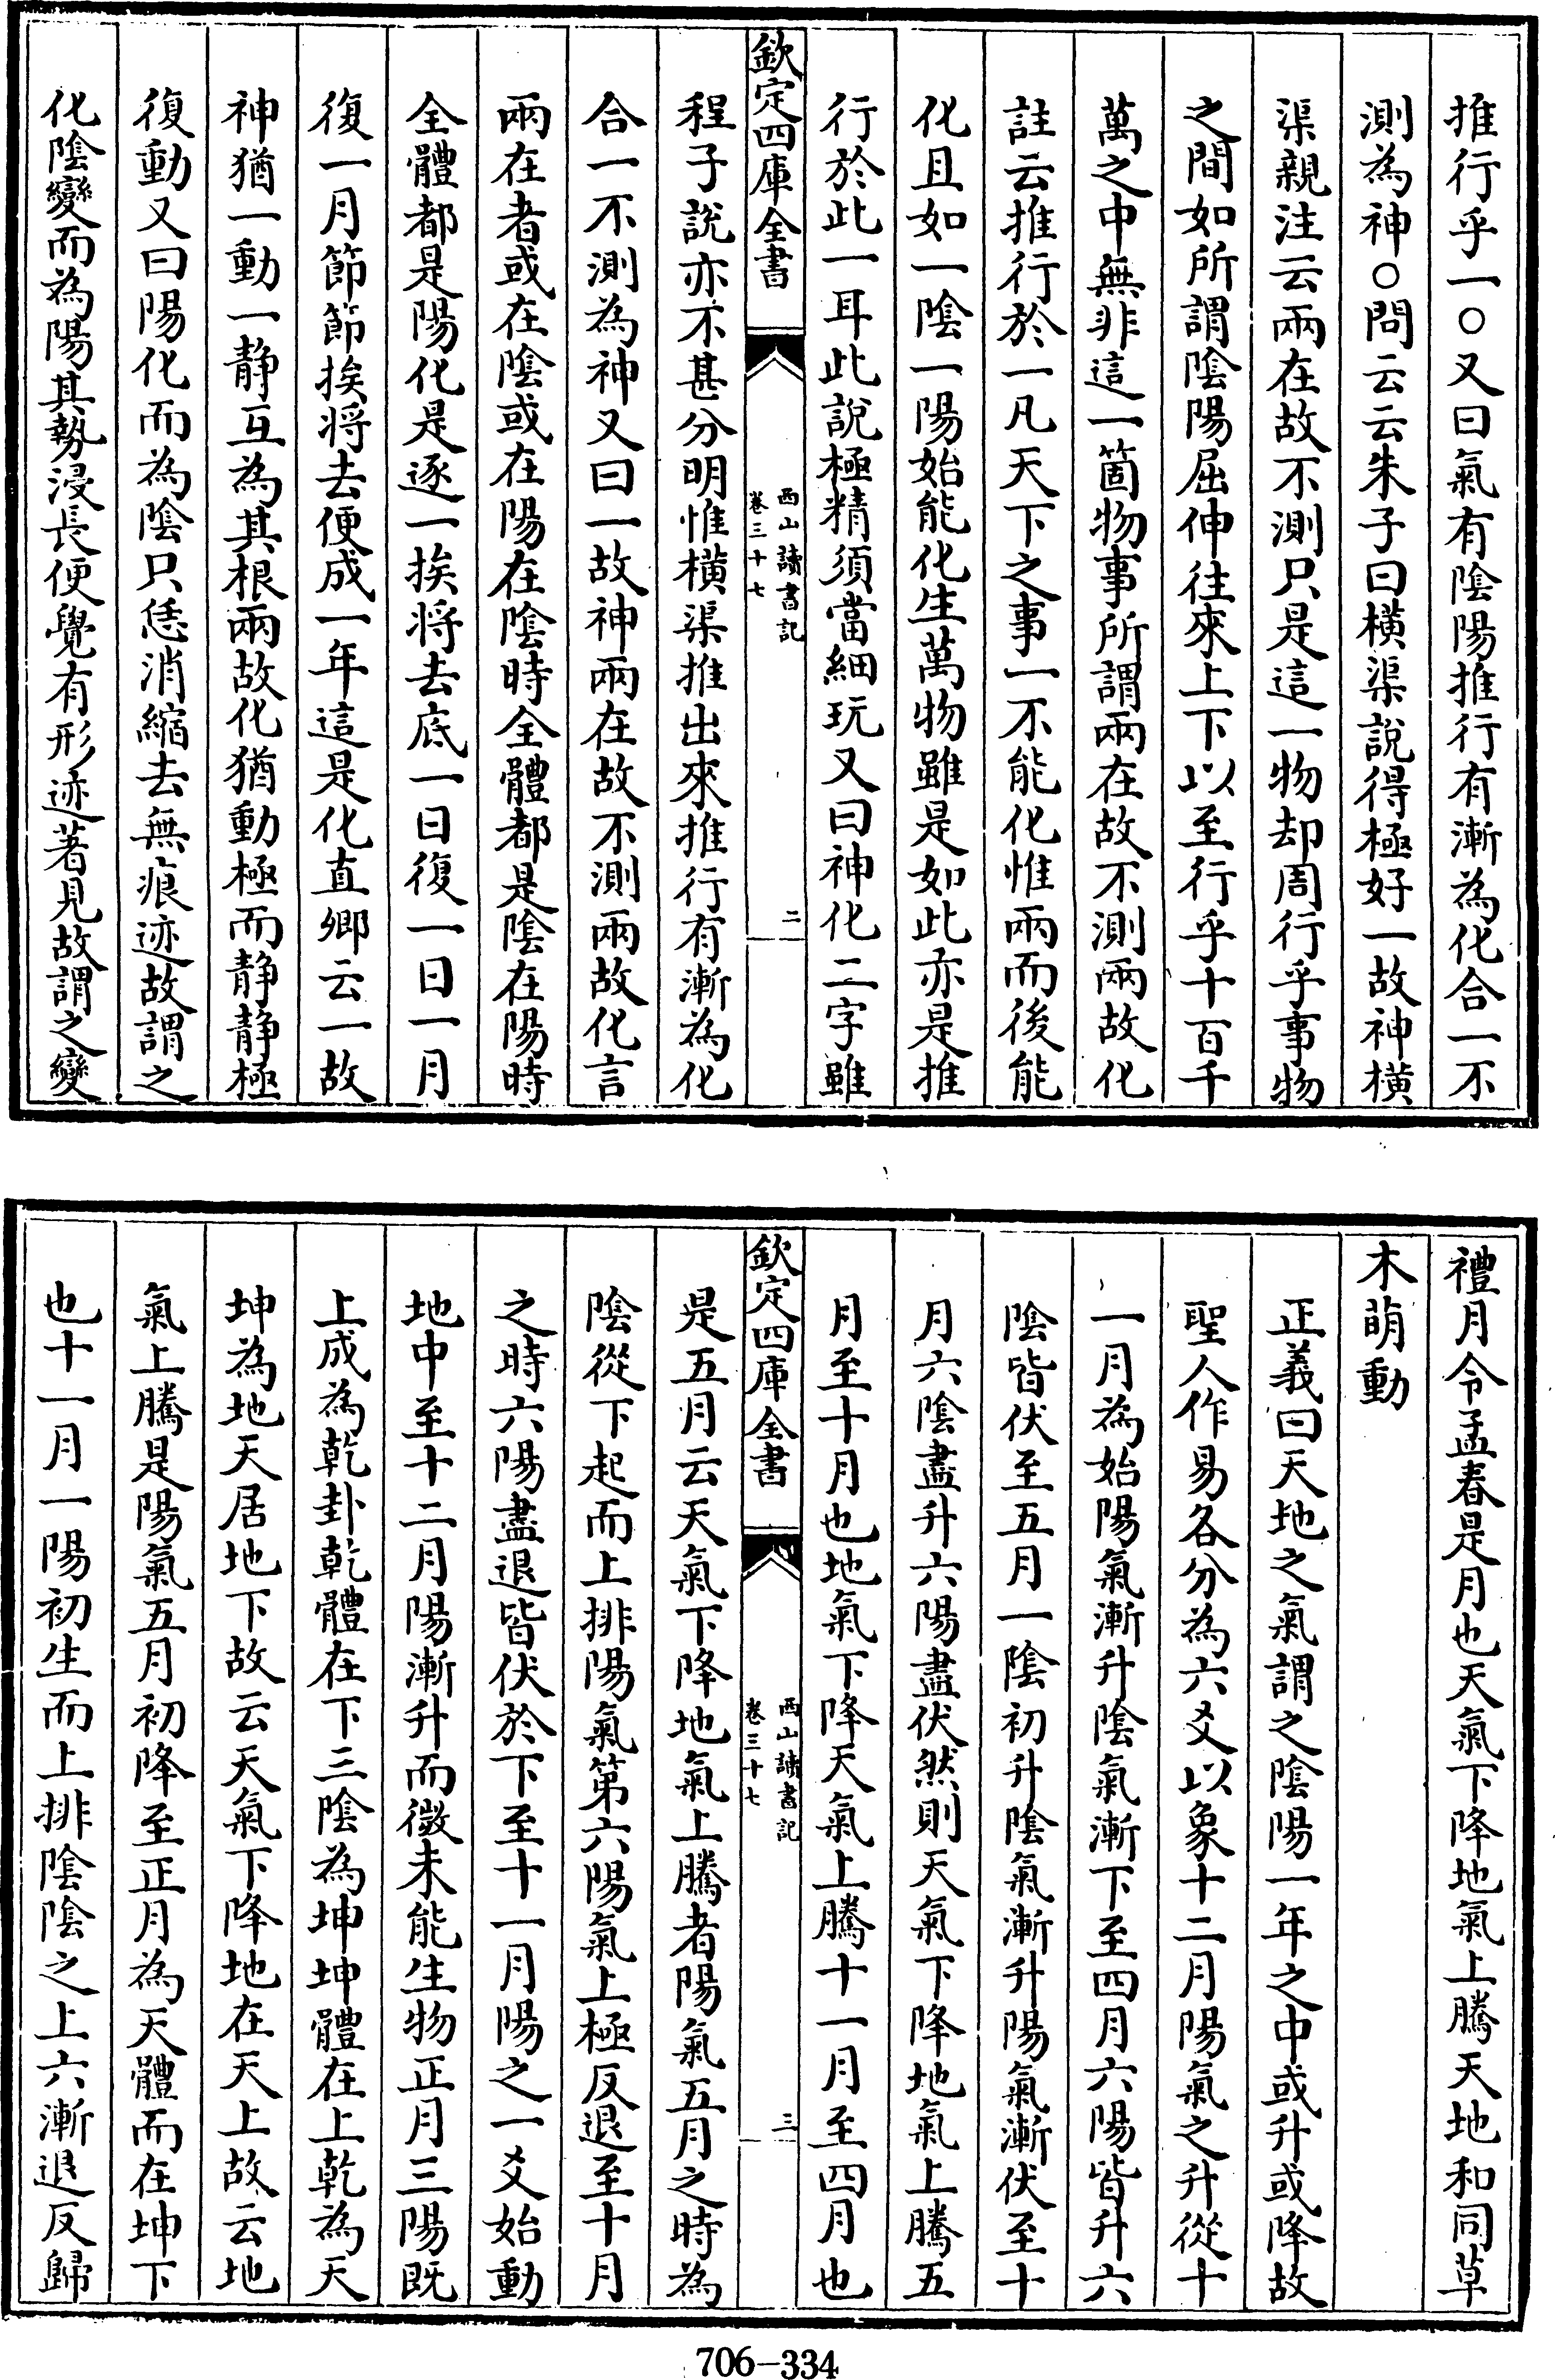 推行乎一○又曰氣有陰陽推行有漸為化合一不
測為神○問云云朱子曰橫渠說得極好一故神橫
渠親注云兩在故不測只是這一物却周行乎事物
之間如所謂陰陽屈伸往來上下以至行乎十百千
萬之中無非這一箇物事所謂兩在故不測兩故化
註云推行於一凡天下之事一不能化惟兩而後能
化且如一陰一陽始能化生萬物雖是如此亦是推
行於此一耳此說極精須當細玩又曰神化二字雖
欽定四庫全書
西山讀書記
卷三十七
二
程子說亦不甚分明惟橫渠推出來推行有漸為化
合一不測為神又曰一故神兩在故不測兩故化言
兩在者或在陰或在陽在陰時全體都是陰在陽時
全體都是陽化是逐一挨將去底一日復一日一月
復一月節節挨將去便成一年這是化直卿云一故
神猶一動一静互為其根兩故化猶動極而静静極
復動又曰陽化而為陰只恁消縮去無痕迹故謂之
化陰變而為陽其勢浸長便覺有形迹著見故謂之變
禮月令孟春是月也天氣下降地氣上騰天地和同草
木萌動
正義曰天地之氣謂之陰陽一年之中或升或降故
聖人作易各分為六爻以象十二月陽氣之升從十
一月為始陽氣漸升陰氣漸下至四月六陽皆升六
陰皆伏至五月一陰初升陰氣漸升陽氣漸伏至十
月六陰盡升六陽盡伏然則天氣下降地氣上騰五
月至十月也地氣下降天氣上騰十一月至四月也
欽定四庫全書
西山讀書記
卷三十七
三
是五月云天氣下降地氣上騰者陽氣五月之時為
陰從下起而上排陽氣第六陽氣上極反退至十月
之時六陽盡退皆伏於下至十一月陽之一爻始動
地中至十二月陽漸升而微未能生物正月三陽既
上成為乾卦乾體在下三陰為坤坤體在上乾為天
坤為地天居地下故云天氣下降地在天上故云地
氣上騰是陽氣五月初降至正月為天體而在坤下
也十一月一陽初生而上排陰陰之上六漸退反歸
706-334